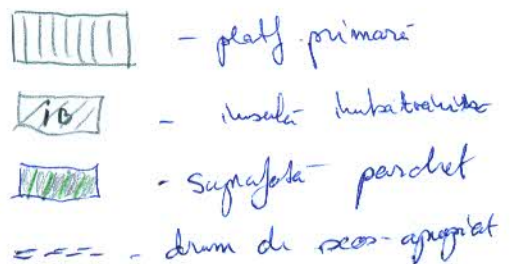 - platf. primară
iB - insulă îmbătrânire
- Suprafată parchet
- drum de scos-apropiat